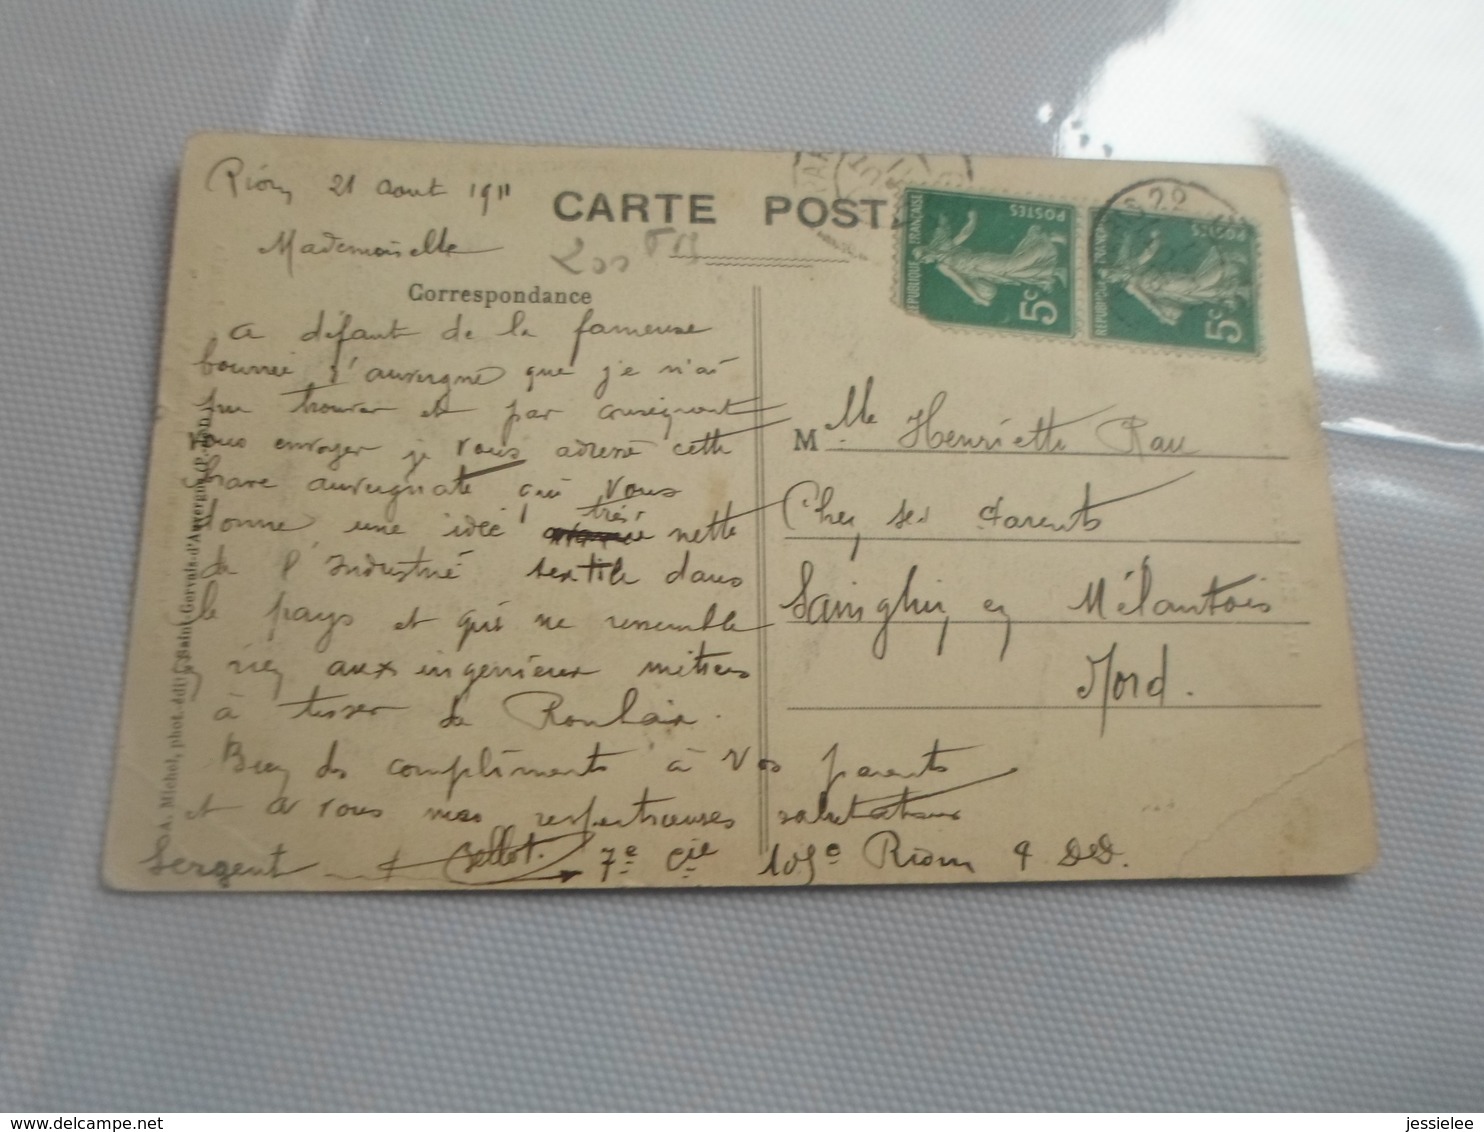 Riom 21 Aout 1911
CARTE POST
Mademoiselle
200
Correspondance
a défaut de la fameuse
bourrée d'auvergne que je n'ai
pu trouver et par conséquent
vous envoyer je vous adresse cette
auvergnate qui vous
donne une idée très nette
de l'Industrie textile dans
le pays et qui ne ressemble
rien aux ingenieux métiers
à tisser de Roubaix.
Bien des compliments à vos parents
et à vous mes respectueuses salutations
Sergent 7e Cie 105e Riom P DeD.
A. Michel, phot.-édit., Saint-Gervais-d'Auvergne
RÉPUBLIQUE FRANÇAISE
POSTES
5c
RÉPUBLIQUE FRANÇAISE
POSTES
5c
Mlle Henriette Rau
Chez ses parents
Sainghin en Mélantois
Nord.
jessielee
www.delcampe.net